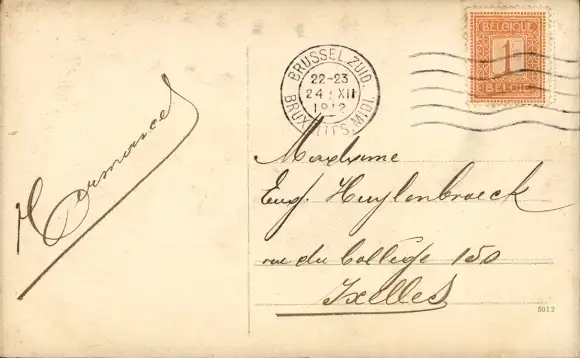 BRUSSEL.ZUID.
22-23
24 XII
1912
BRUXELLES.MIDI.
BELGIQUE
1
BELGIË
Madame
Eug. Huylenbroeck
rue du Collège 150
Ixelles
5012